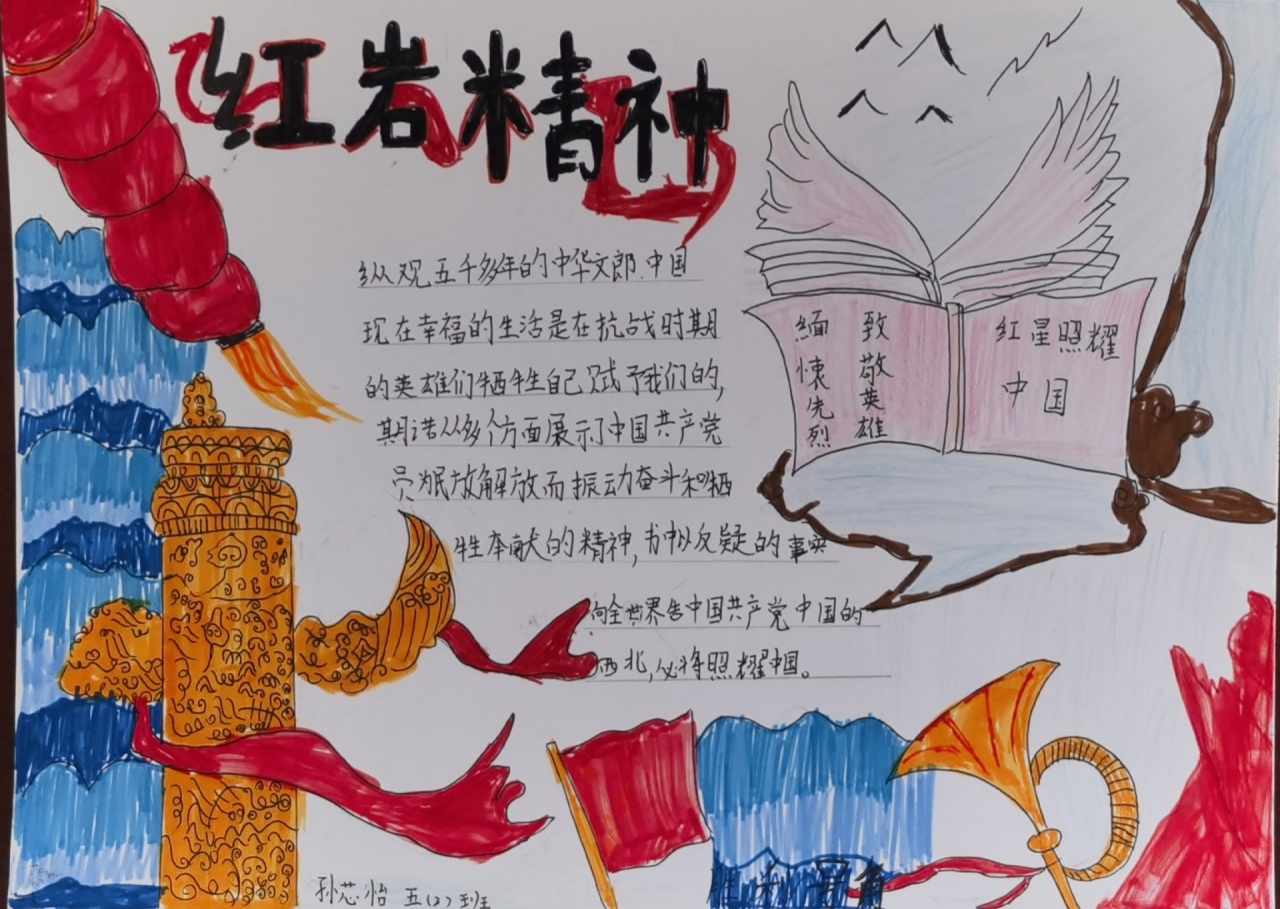 红岩精神
纵观五千多年的中华文郎.中国
现在幸福的生活是在抗战时期
的英雄们牺牲自己赋予我们的,
期诺从多个方面展示了中国共产党
员为民放解放而振动奋斗和牺
牲奉献的精神,书中以反疑的事实
向全世界告中国共产党中国的
西北,必将照耀中国。
缅怀先烈
致敬英雄
红星照耀
中国
孙芯怡 五(2)班
胜利号角